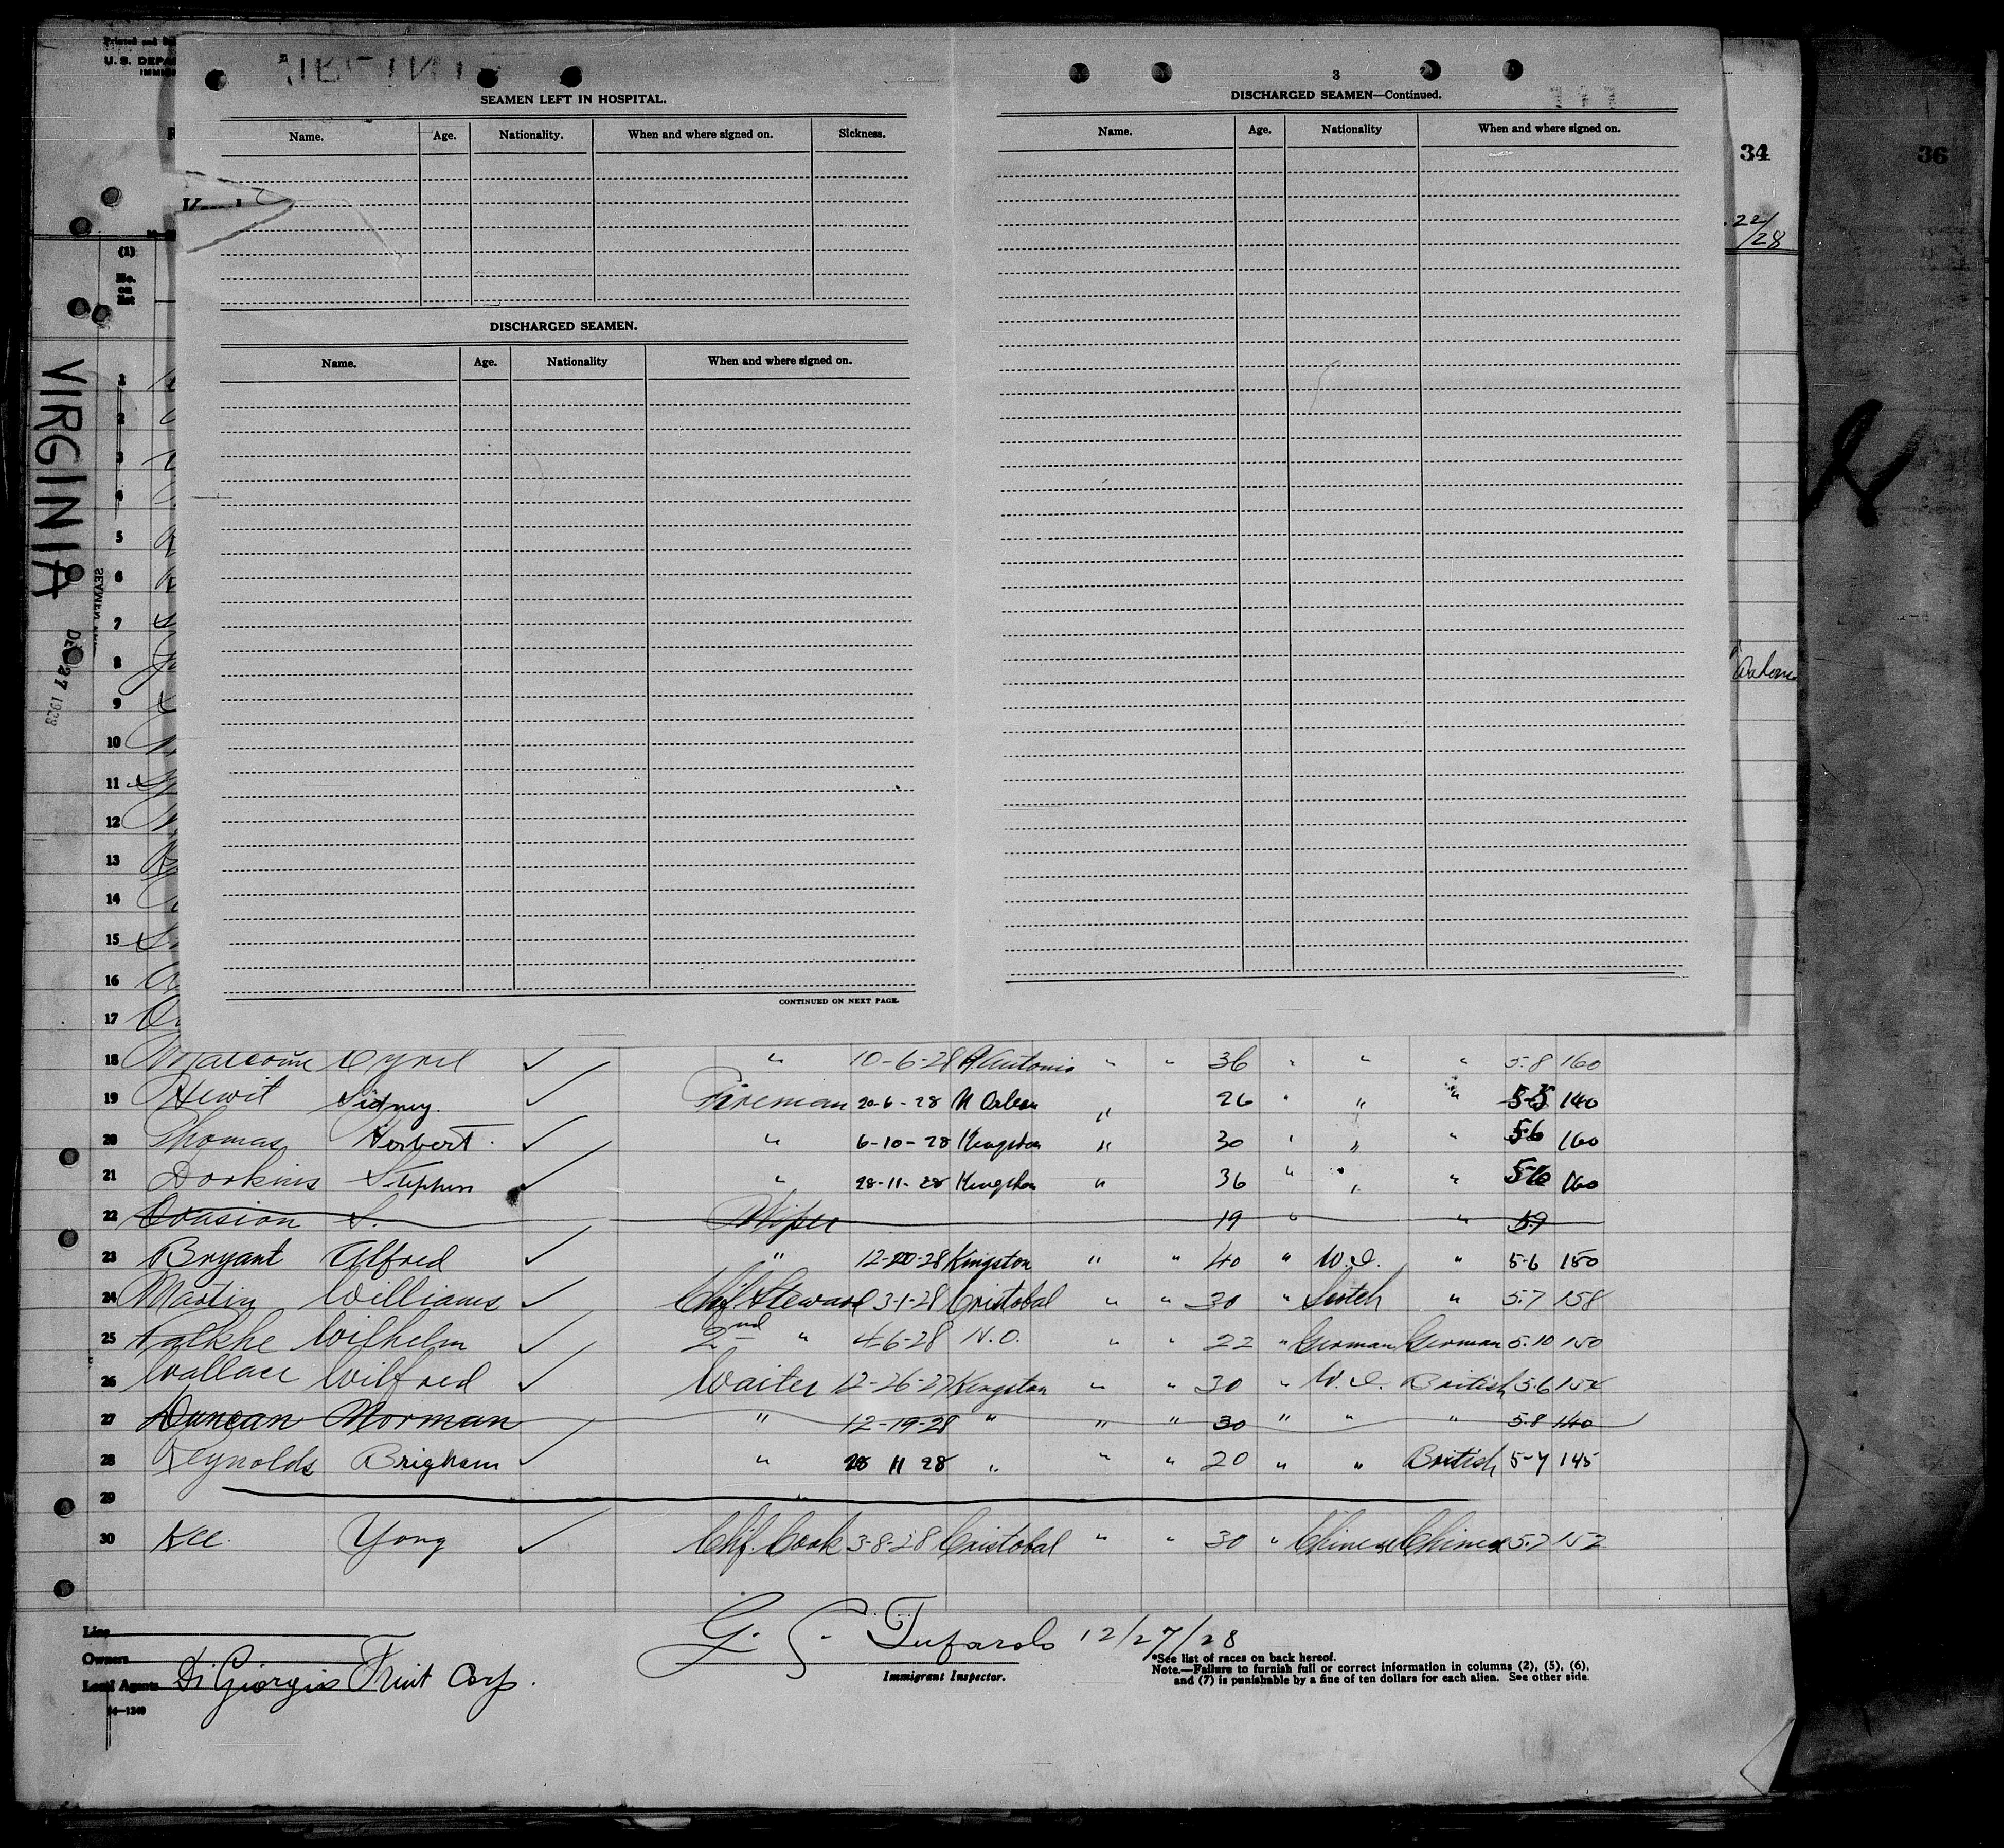 U. S. DEPA
34
36
22/28
VIRGINIA
DEC 27 1928
SEAMEN LEFT IN HOSPITAL.
Name. Age. Nationality. When and where signed on. Sickness.
DISCHARGED SEAMEN.
Name. Age. Nationality When and where signed on.
CONTINUED ON NEXT PAGE.
3
DISCHARGED SEAMEN—Continued.
Name. Age. Nationality When and where signed on.
(1)
No. on list
1
2
3
4
5
6
7
8
9
10
11
12
13
14
15
16
17
18 Malcolm Cyril ✓ " 10-6-28 P. Antonio " " 36 " " " 5.8 160
19 Hewit Sidney. ✓ Fireman 20-6-28 N Orlean " 26 " " " 5-5 140
20 Thomas Herbert. ✓ " 6-10-28 Kingston " 30 " " " 5-6 160
21 Dorkins Stephen ✓ " 28-11-28 Kingston " 36 " " " 5-6 160
22 S. Wiper 19 " " 5.9
23 Bryant Alfred ✓ " 12-20-28 Kingston " " 40 " W.I. " 5-6 150
24 Martin Williams ✓ Chf. Steward 3-1-28 Cristobal " " 30 " Scotch " 5.7 158
25 Falkhe Wilhelm ✓ 2nd " 4-6-28 N.O. " " 22 " German German 5.10 150
26 Wallace Wilfred ✓ Waiter 12-26-27 Kingston " " 30 " W.I. British 5.6 154
27 Duncan Norman " 12-19-28 " " " 30 " " " 5.8 140
28 Reynolds Brigham ✓ " 28 11 28 " " " 20 " " British 5-4 145
29
30 Kee. Yong ✓ Chf. Cook 3-8-28 Cristobal " " 30 " Chinese Chinese 5.7 152
Line
Owners
Local Agents Di Giorgio Fruit Corp.
14—1240
G. S. Tufarolo 12/27/28
Immigrant Inspector.
*See list of races on back hereof.
Note.—Failure to furnish full or correct information in columns (2), (5), (6),
and (7) is punishable by a fine of ten dollars for each alien. See other side.